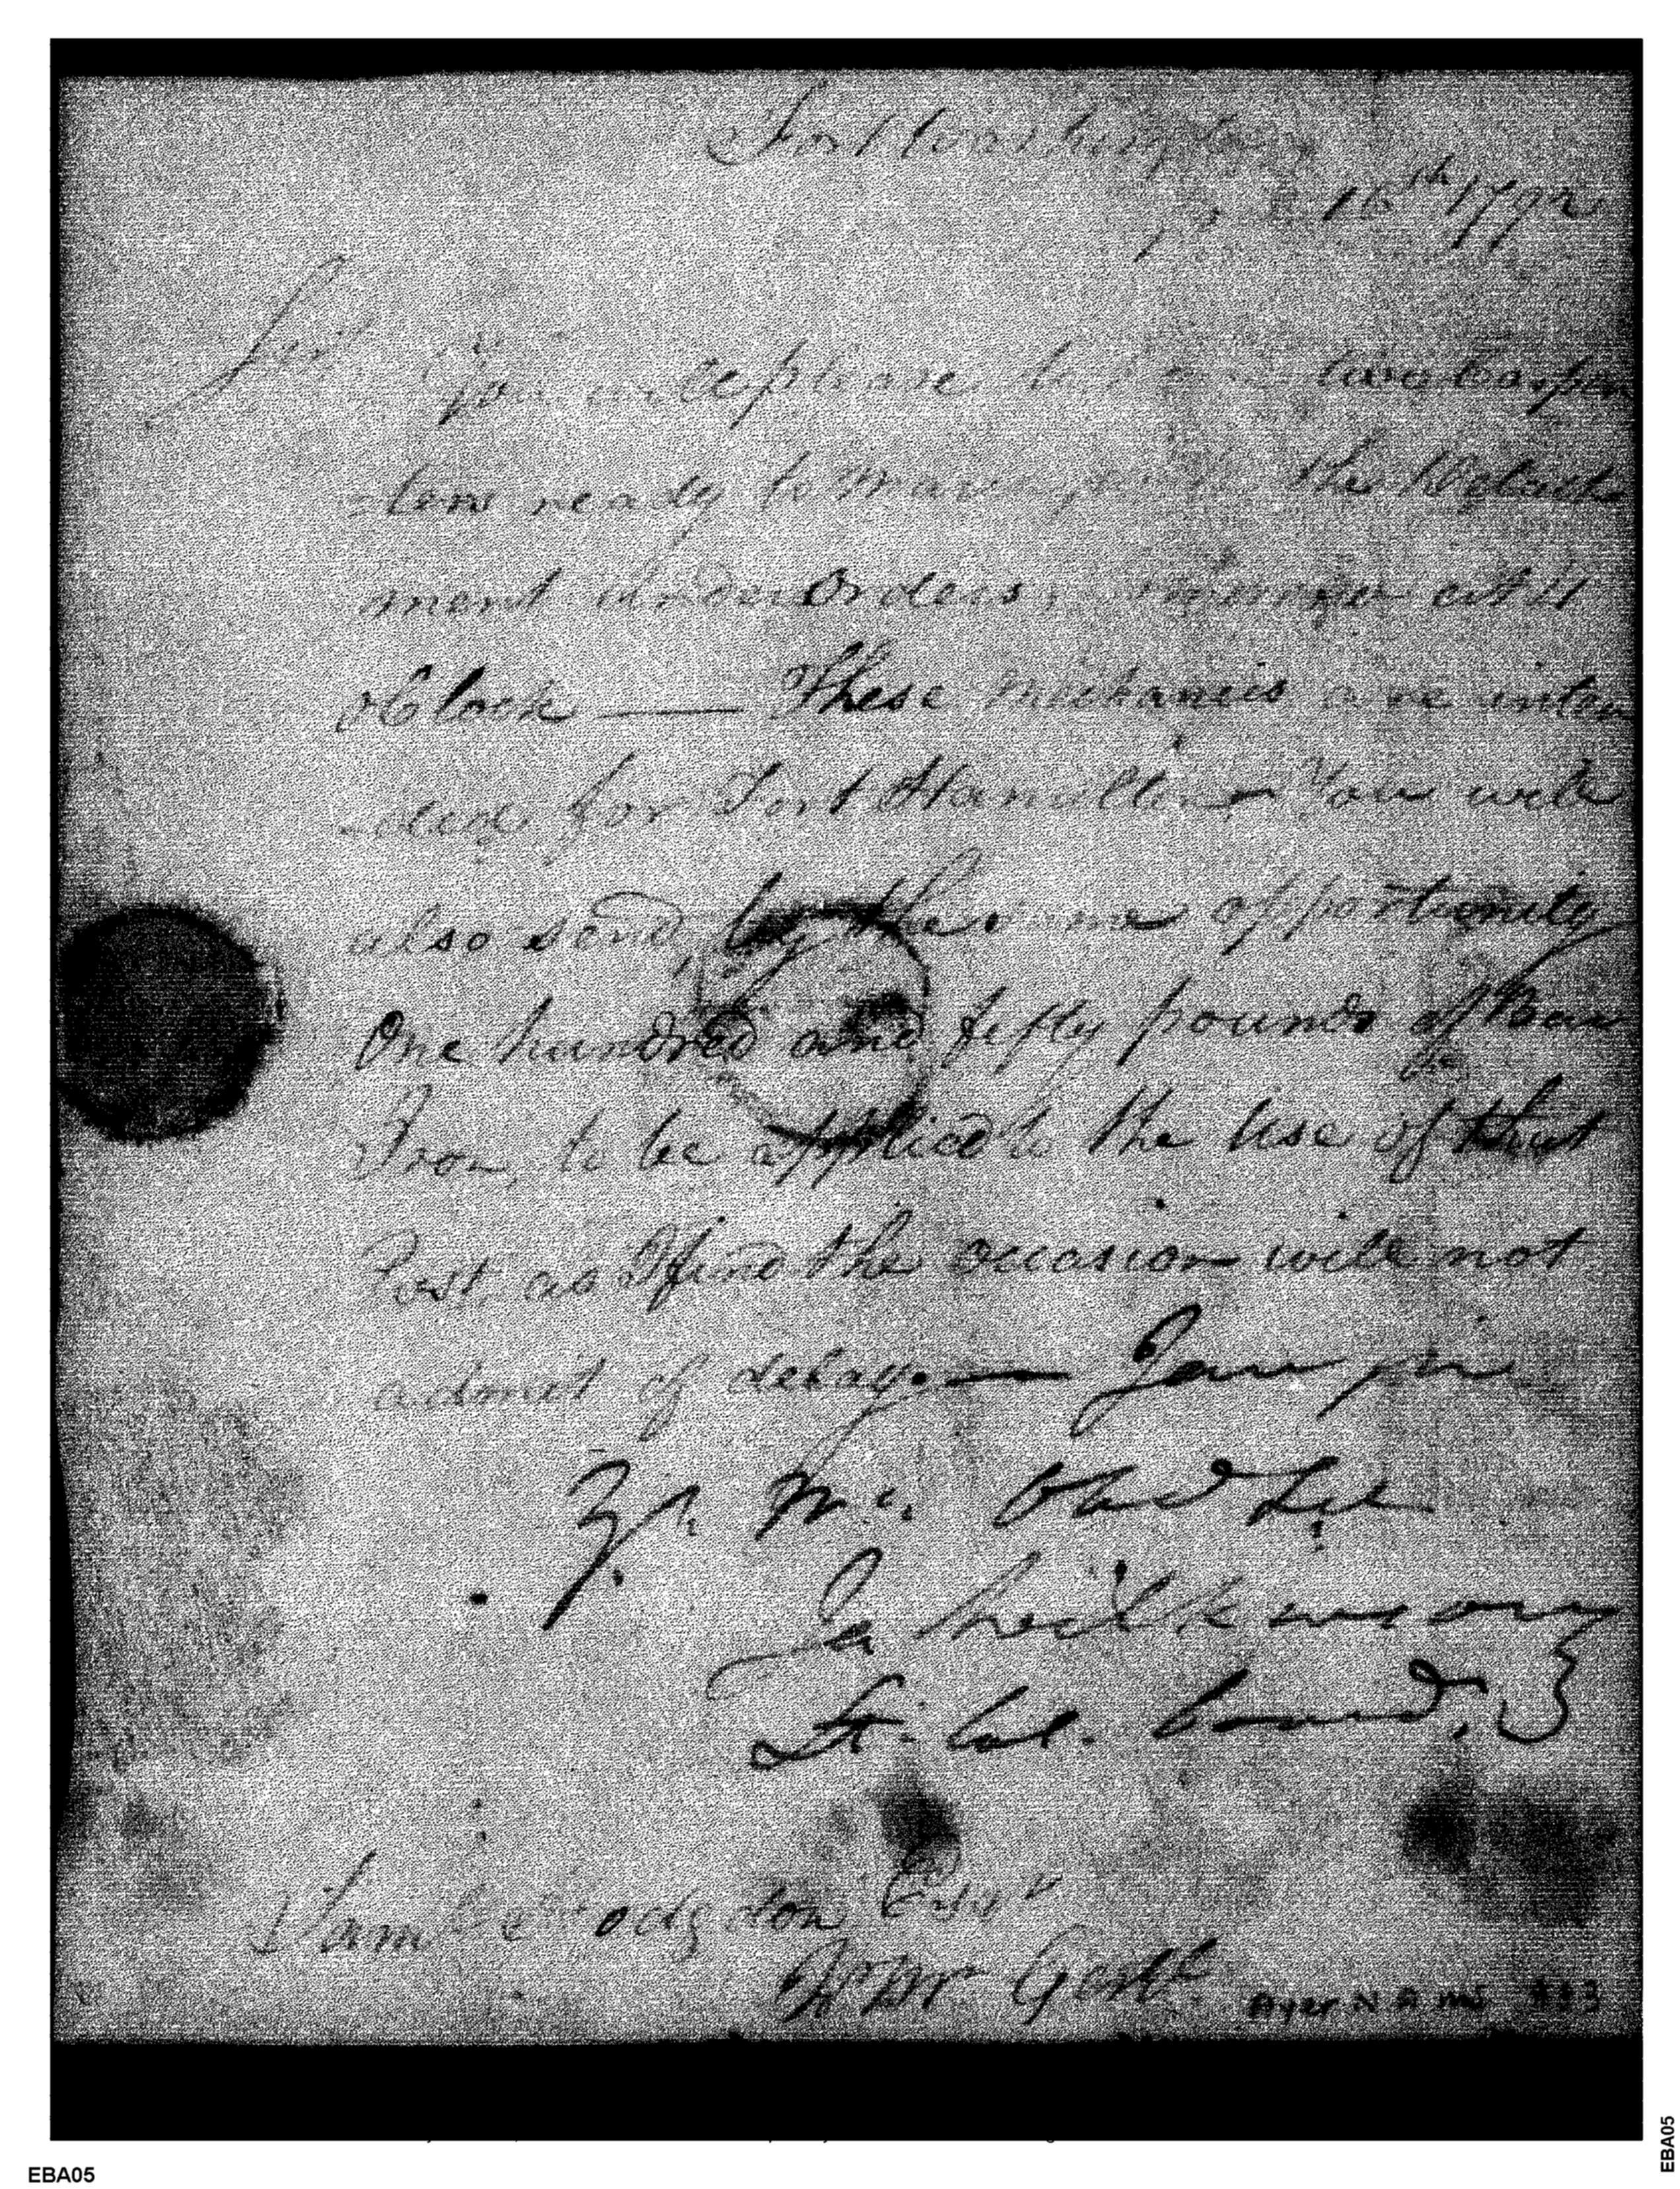 Fort Washington
16th 1792
Sir
You will please have two Carpen
-ters ready to march the Detach
ment under Orders, at 11
oClock — These mechanics are inten
-ded for Fort Hamilton — You will
also send, by the same opportunity
One hundred and fifty pounds of Bar
Iron, to be applied to the Use of that
Post, as I find the occasion will not
admit of delay. — I am sir
Yr. Mo. Obed Set
Ja Wilkinson
Lt. Col. Comd.
Saml Hodgdon Esqr
Qr Mr Genl.
Ayer N A MS
EBA05
EBA05